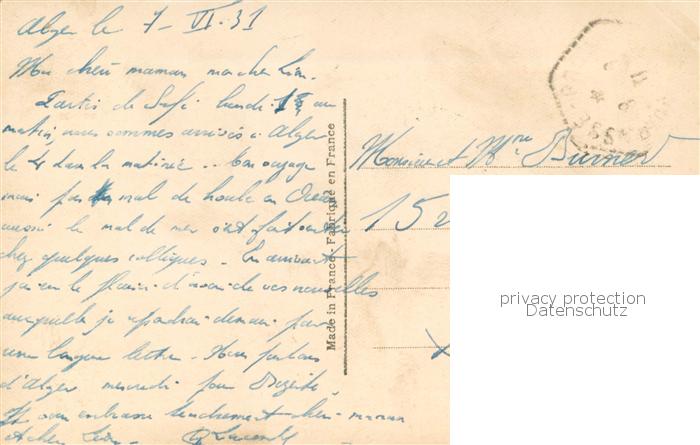 Alger le 7-VI-31
Ma chère maman mon cher Léon.
Partis de Safi lundi 1er au
matin, nous sommes arrivés à Alger
le 4 dans la matinée. Bon voyage
mais pas mal de houle en Océan
aussi le mal de mer
chez quelques collègues. En arrivant
j'ai eu le plaisir d'avoir de vos nouvelles
je répondrai demain par
une longue lettre. Nous partons
d'Alger mercredi pour Bizerte.
Je vous embrasse tendrement chère maman
et cher Léon.
Made in France - Fabriqué en France
Monsieur et Mme
15
privacy protection
Datenschutz